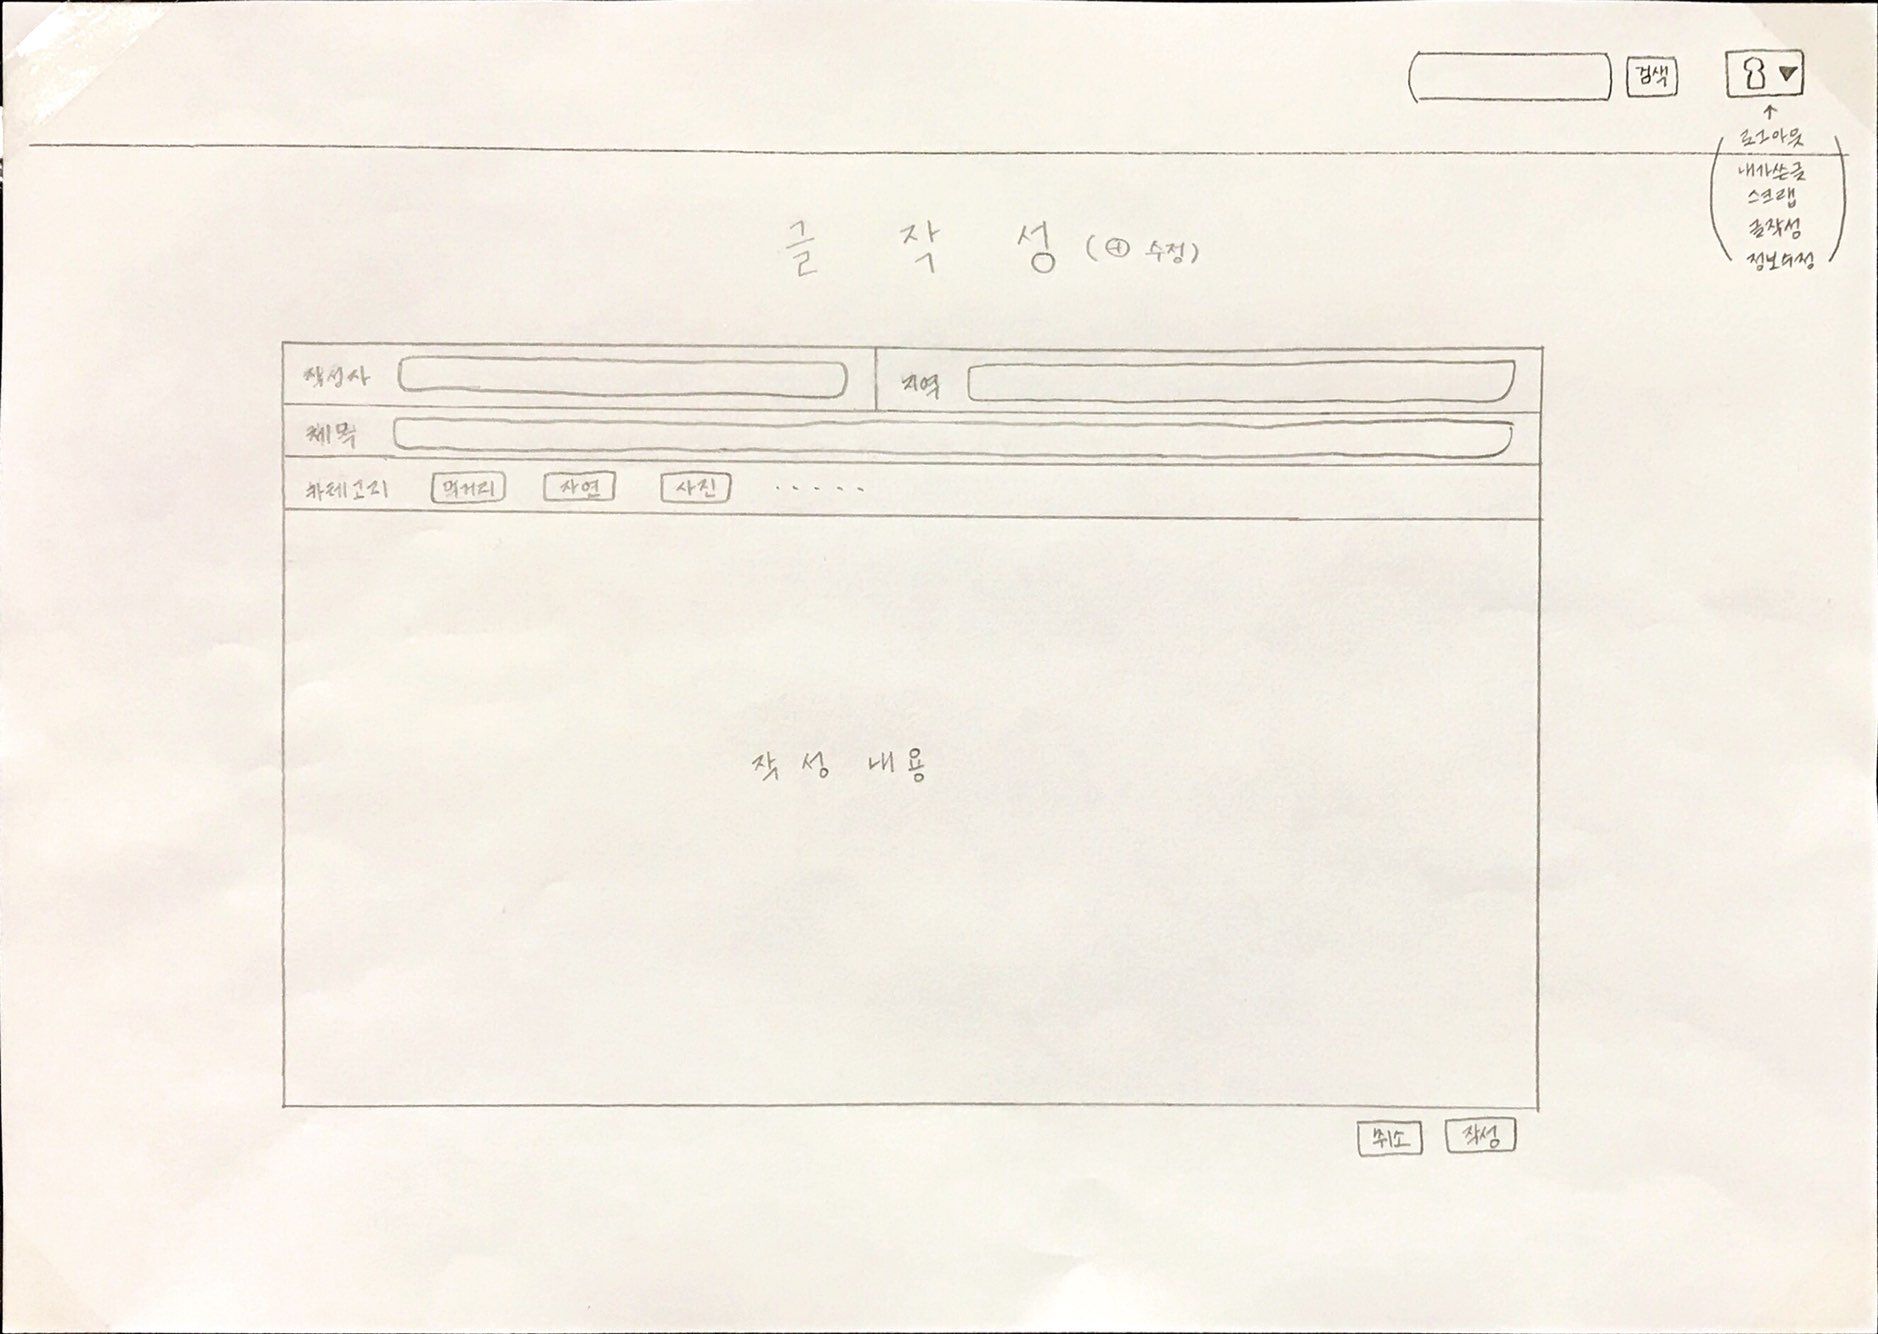 검색
로그아웃
내가쓴글
스크랩
글작성
정보수정
글 작 성 (⊕ 수정)
작성자
지역
제목
카테고리 먹거리 자연 사진 . . . . .
작성 내용
취소 작성